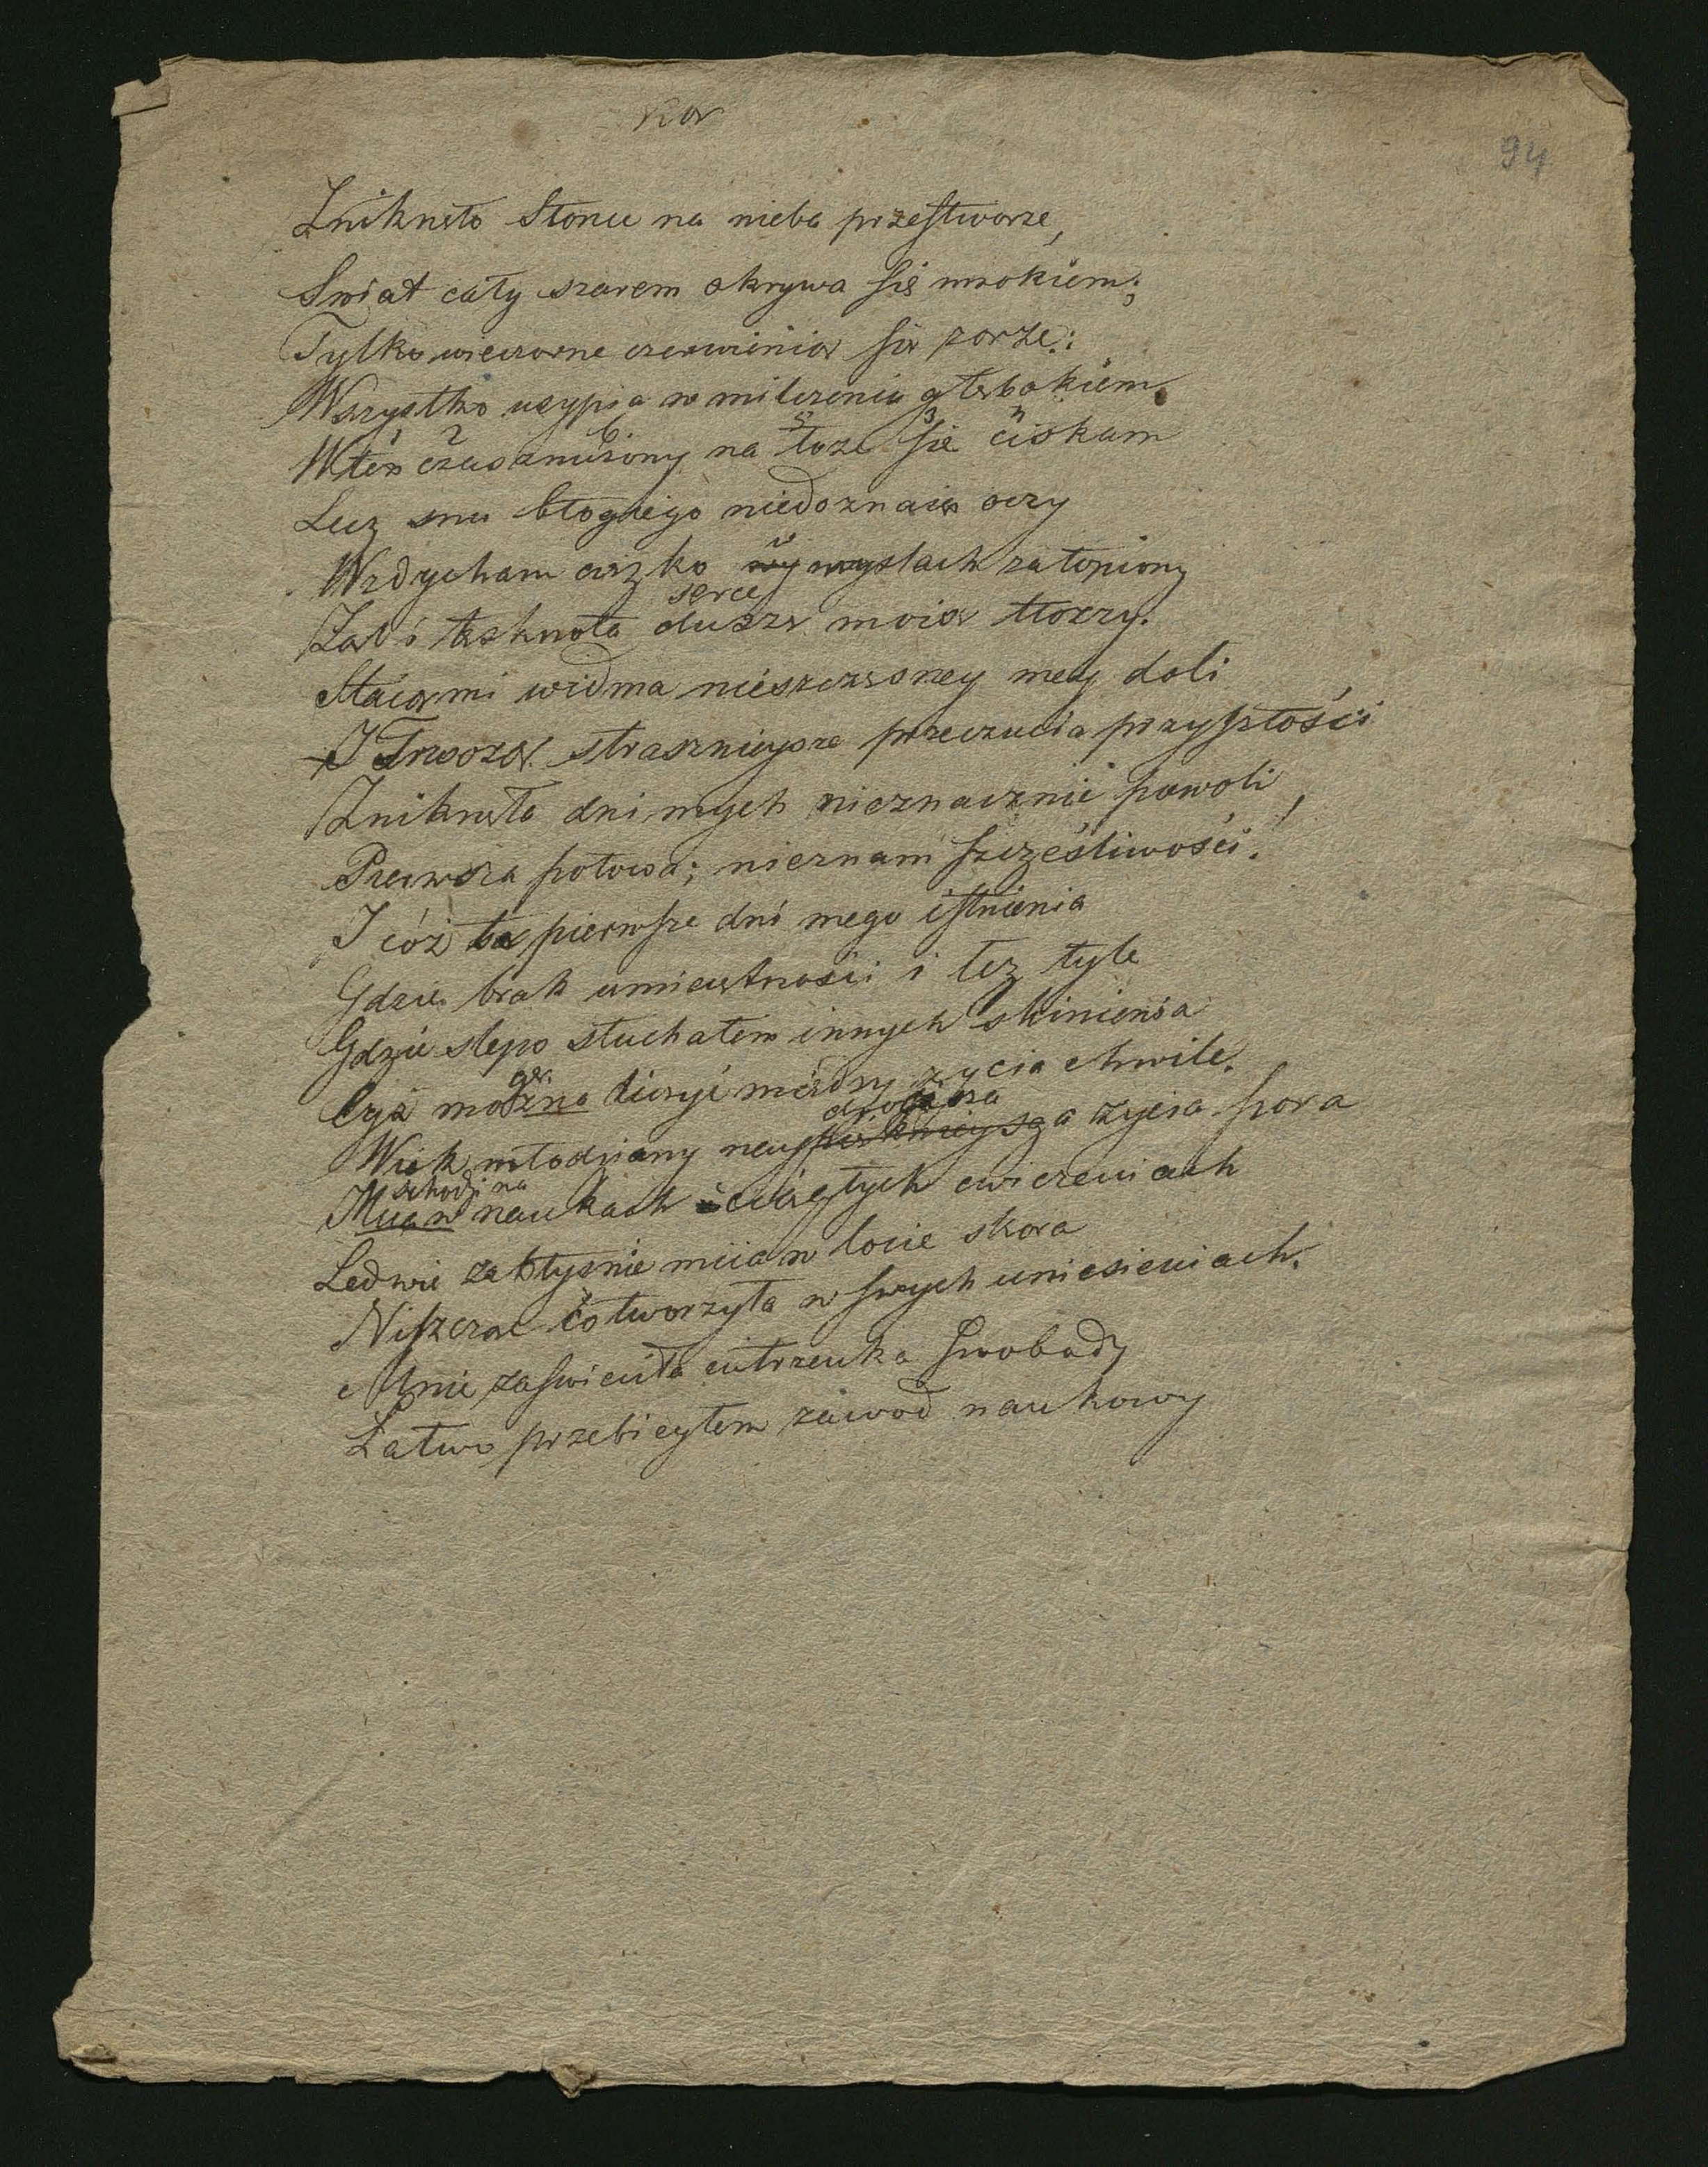 94
Zniknęło Słonce na nieba przestworze,
Swiat cały szarem okrywa się mrokiem;
Tylko wieczorne czerwienią się zorze:
Wszystko usypia w milczeniu głębokiem.
Wten czas znużony na łoże się ciskam
Lecz snu błogiego niedoznaią oczy
Wzdycham cięzko w myslach zatopiony
serce
Zal i tęsknota duszę moią tłoczy.
Staią mi widma nieszczęsney mey doli
I Trwożą strasznieysze przeczucia przyszłości
Zniknęła dni mych nieznacznie powoli,
Pierwsza połowa; nieznam szczęśliwości!
I cóż są pierwsze dni mego istnienia
Gdzie brak umieiętności i łez tyle
Gdzie slepo słuchałem innych skinienia
Czyż można liczyć miedzy zycia chwile.
droższa
Wiek młodziany naypięknieysza życia pora
schodzi na
Miia w naukach i ciągłych cwiczeniach
Ledwie zabłysnie miia w locie skora
Niszcząc co tworzyła w swych uniesieniach.
Mnie zaswieciła iutrzenka swobody
Łatwo przebiegłem zawod naukowy